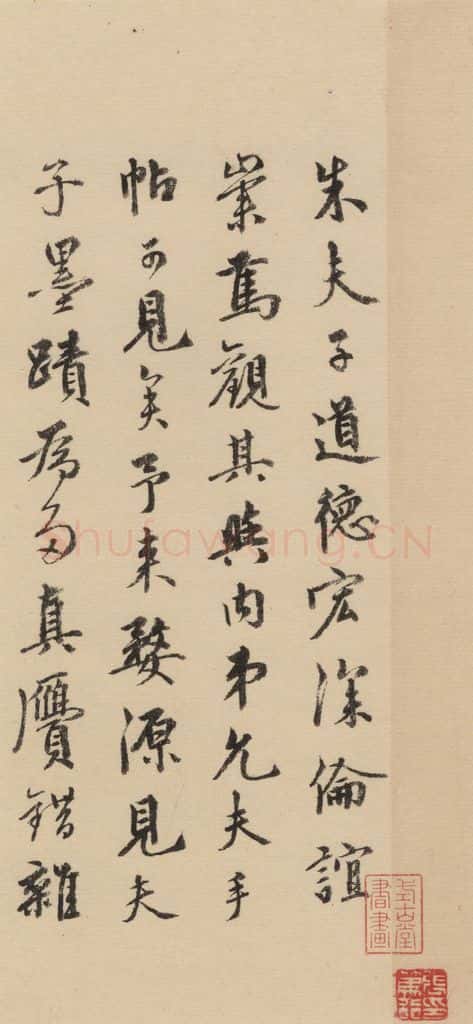 朱夫子道德宏深倫誼
崇篤觀其與内弟允夫手
帖可見矣予來婺源見夫
子墨蹟為多真贗錯雜
shufawang.CN